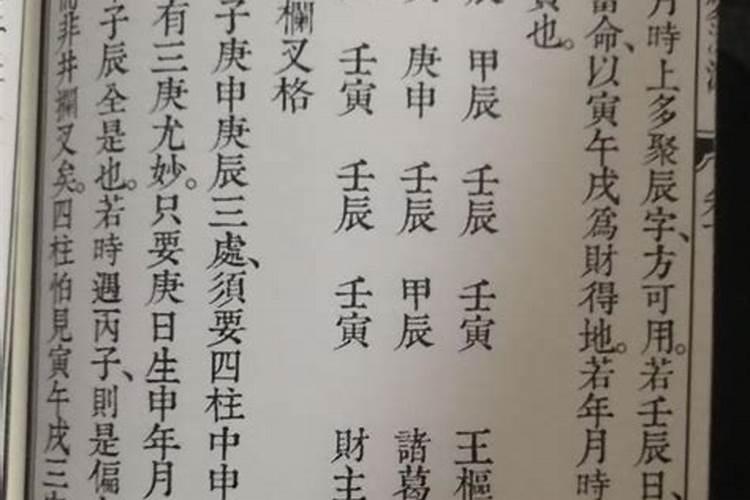 月時上多聚辰字、方可用。若壬辰日、
富命、以寅午戌爲財得地。若年月時
也。
辰 甲辰 壬辰 壬寅 王樞
庚申 壬辰 甲辰 諸葛
壬寅 壬辰 壬寅 財主
欄叉格
子庚申庚辰三處、須要四柱中申
有三庚尤妙。只要庚日生申年月
子辰全是也。若時遇丙子、則是偏
非井欄叉矣。四柱怕見寅午戌三